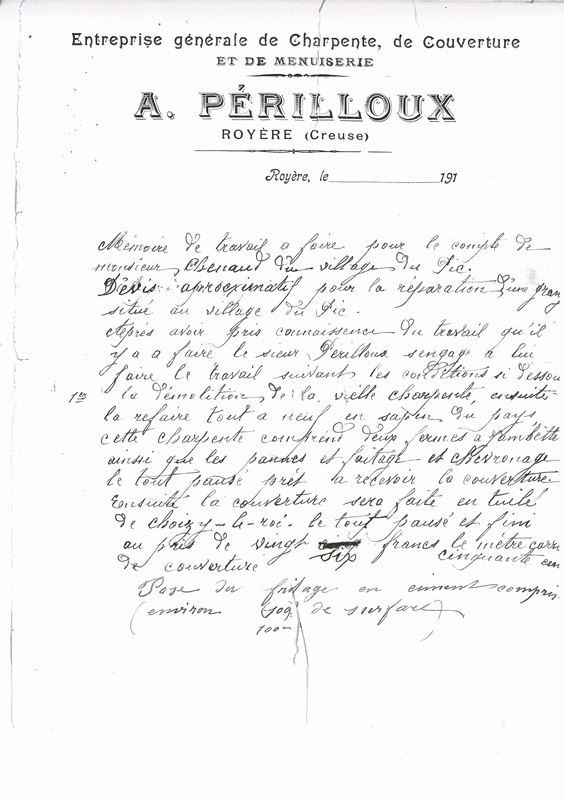 Entreprise générale de Charpente, de Couverture
ET DE MENUISERIE
A. PÉRILLOUX
ROYÈRE (Creuse)
Royère, le 191
Mémoire de travail a faire pour le compte de
monsieur Chenaud du village du Pic.
Dévis aproximatif pour la réparation d'une gran
situé au village du Pic.
Après avoir pris connaissence du travail qu'il
y a a faire le sieur Périlloux sengage a lui
faire le travail suivant les conditions si dessou
1re la démolition de la vielle charpente, ensuite
la refaire tout a neuf en sapin du pays
cette charpente comprend deux fermes a jambette
ainsi que les pannes et faitage et chevronage
le tout pausé prét a recevoir la couverture.
Ensuite la couverture sera faite en tuile
de choizy-le-roi. le tout pausé et fini
au pris de vingt six francs le métre carré
de couverture cinquante cen
Pose du faitage en ciment compris
(environ de surface)
100